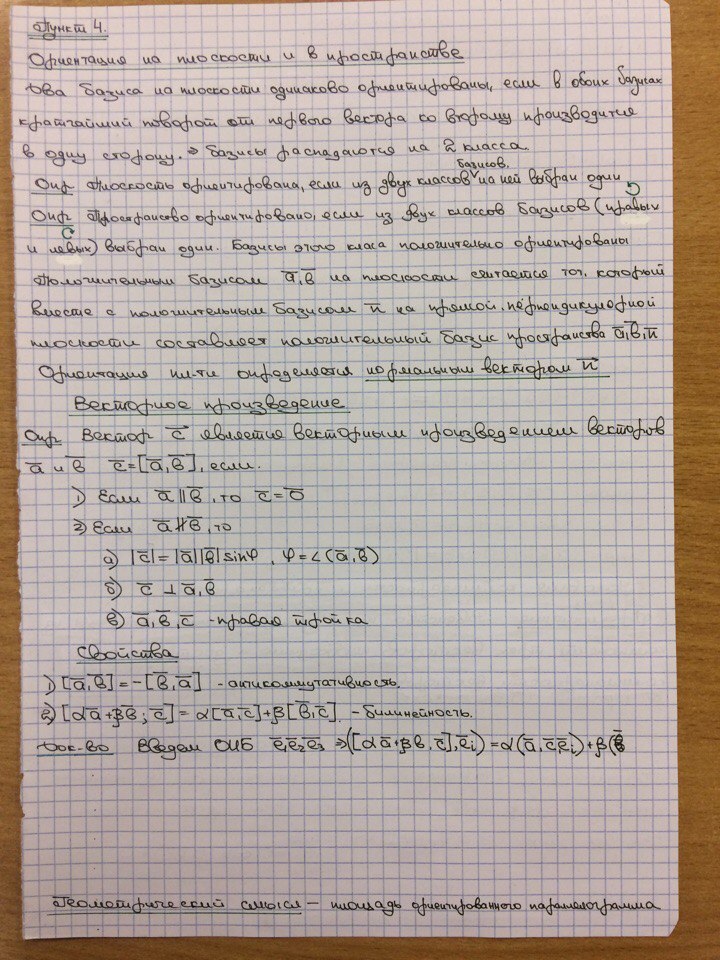 Пункт 4.
Ориентация на плоскости и в пространстве
Два базиса на плоскости одинаково ориентированы, если в обоих базисах
кратчайший поворот от первого вектора ко второму производится
в одну сторону. ⇒ базисы распадаются на 2 класса.
Опр Плоскость ориентирована, если из двух классов базисов, на ней выбран один
Опр Пространсво ориентировано, если из двух классов базисов (правых
и левых) выбран один. Базисы этого класа положительно ориентированы
Положительным базисом a̅,b̅ на плоскости считается тот, который
вместе с положительным базисом n̅ на прямой, перпендикулярной
плоскости составляет положительный базис пространства a̅,b̅,n̅
Ориентация пл-ти определяется нормальным вектором n⃗
Векторное произведение
Опр Вектор c̅ является векторным произведением векторов
a̅ и b̅ c̅=[a̅,b̅], если.
1) Если a̅∥b̅, то c̅=o̅
2) Если a̅∦b̅, то
а) |c̅|=|a̅||b̅|sinφ, φ=∠(a̅,b̅)
б) c̅ ⊥ a̅,b̅
в) a̅,b̅,c̅ -правая тройка
Свойства
1) [a̅,b̅]=-[b̅,a̅] -антикоммутативность.
2) [αa̅+βb̅;c̅]=α[a̅,c̅]+β[b̅,c̅]. -билинейность.
Док-во Введем ОНБ e̅₁e̅₂e̅₃ ⇒([αa̅+βb,c̅],e̅ᵢ)=α(a̅,c̅,e̅ᵢ)+β(b̅
Геометрический смысл – площадь ориентированного параллелограмма